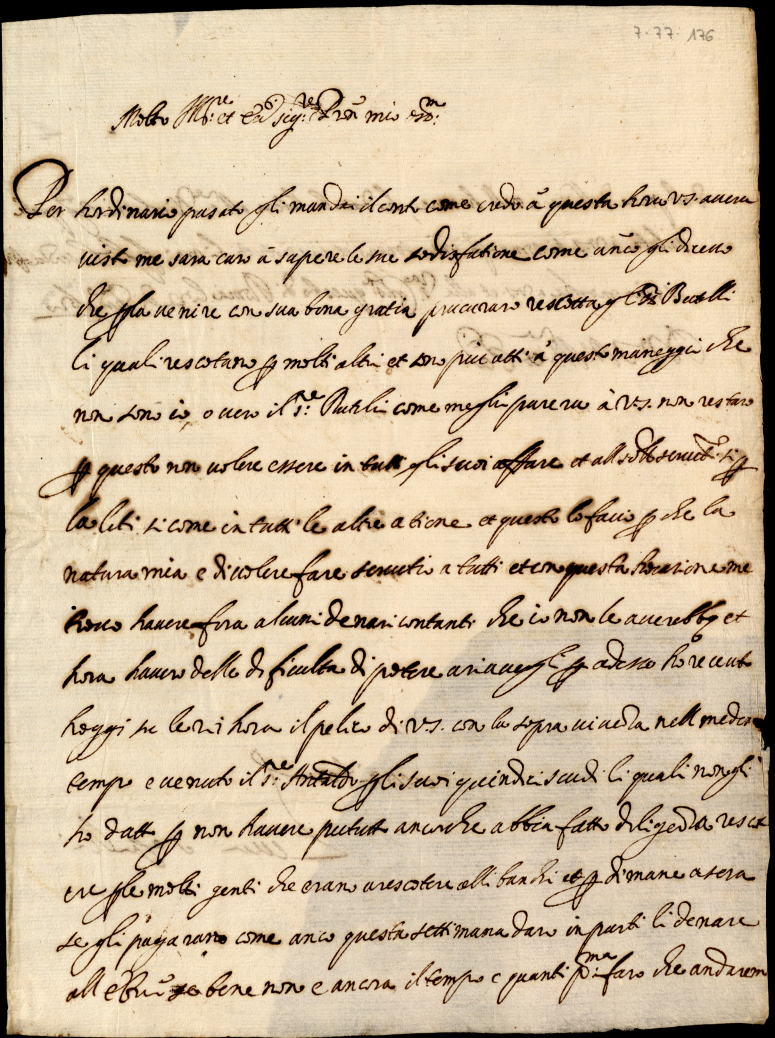 7·77· 176
Molto Ill.re et Ecc. sig.re Pron mio
Per hordinario pasato gli mandai il conto come credo à questa hora v.s. avera
visto me sara caro à sapere le sue sodisfatione come anco gli dicevo
che p la venire con sua bona gratia procuraro
li quali rescotano p molti altri et son più atti à questo maneggi che
non son io, o vero il s.re Rutili come megli parera à v.s. non restaro
p questo non volere essere in tutti gli suoi affare et si p
la liti si come in tutti le altre atione et questo lo facio p che la
natura mia e di volere fare servitio a tutti et con questa hocasione me
trovo havere fora alcuni denari contanti che io non le averebbe et
hora havero delle dificulta di potere p adesso hò receuto
hoggi su le hora il di v.s. con la sopra nell medes
tempo e venuto il s.re gli suoi quindici scudi li quali non gli
ho datt p non havere potutt ancorche abbia fatto diligentia rescot
ere p le molti genti che erano a rescotere alli banchi et p dimane a sera
se gli pagarano come anco questa settimana daro in parti li denare
all se bene non e ancora il tempo e quanti p.ma faro che andarem